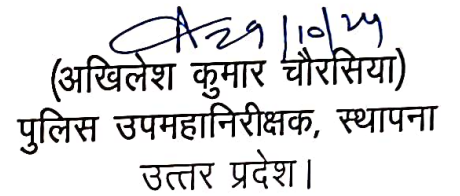 29/10/24
(अखिलेश कुमार चौरसिया)
पुलिस उपमहानिरीक्षक, स्थापना
उत्तर प्रदेश।